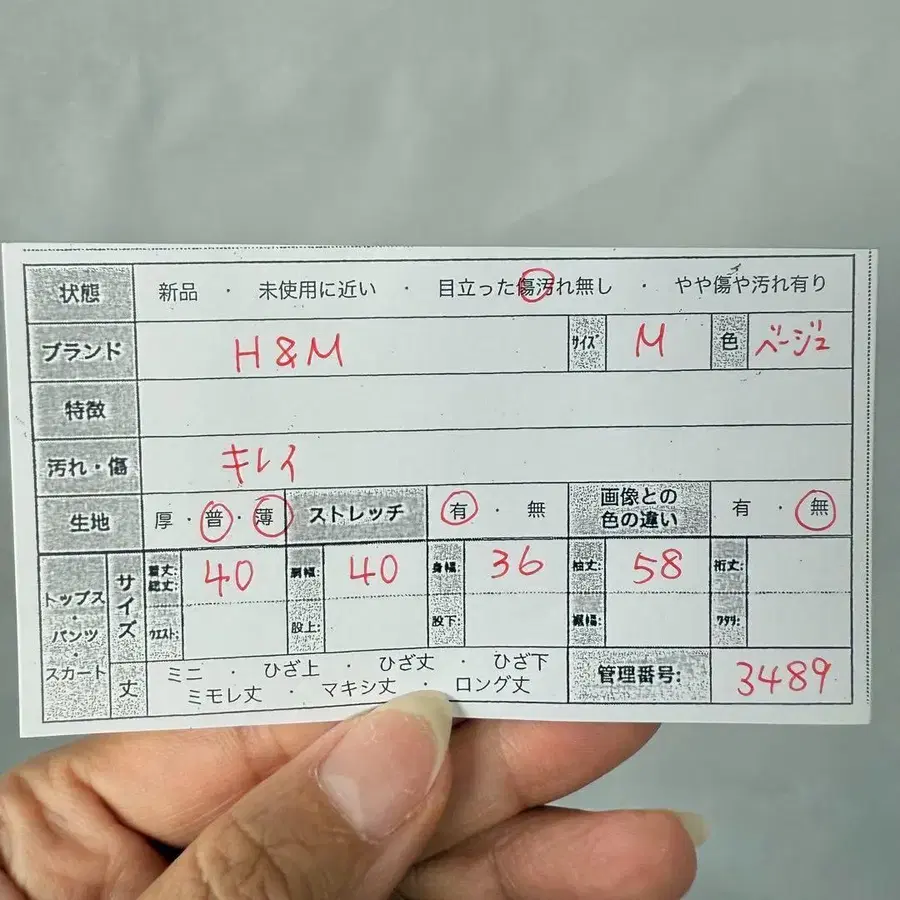 状態 新品 ・ 未使用に近い ・ 目立った傷汚れ無し ・ やや傷や汚れ有り
ブランド H&M サイズ M 色 ベージュ
特徴
汚れ・傷 キレイ
生地 厚・普・薄 ストレッチ 有・無 画像との色の違い 有・無
トップス・パンツ・スカート サイズ 着丈:総丈: 40 肩幅: 40 身幅: 36 袖丈: 58 裄丈:
ウエスト: 股上: 股下: 裾幅: ワタリ:
丈 ミニ ・ ひざ上 ・ ひざ丈 ・ ひざ下
ミモレ丈 ・ マキシ丈 ・ ロング丈 管理番号: 3489